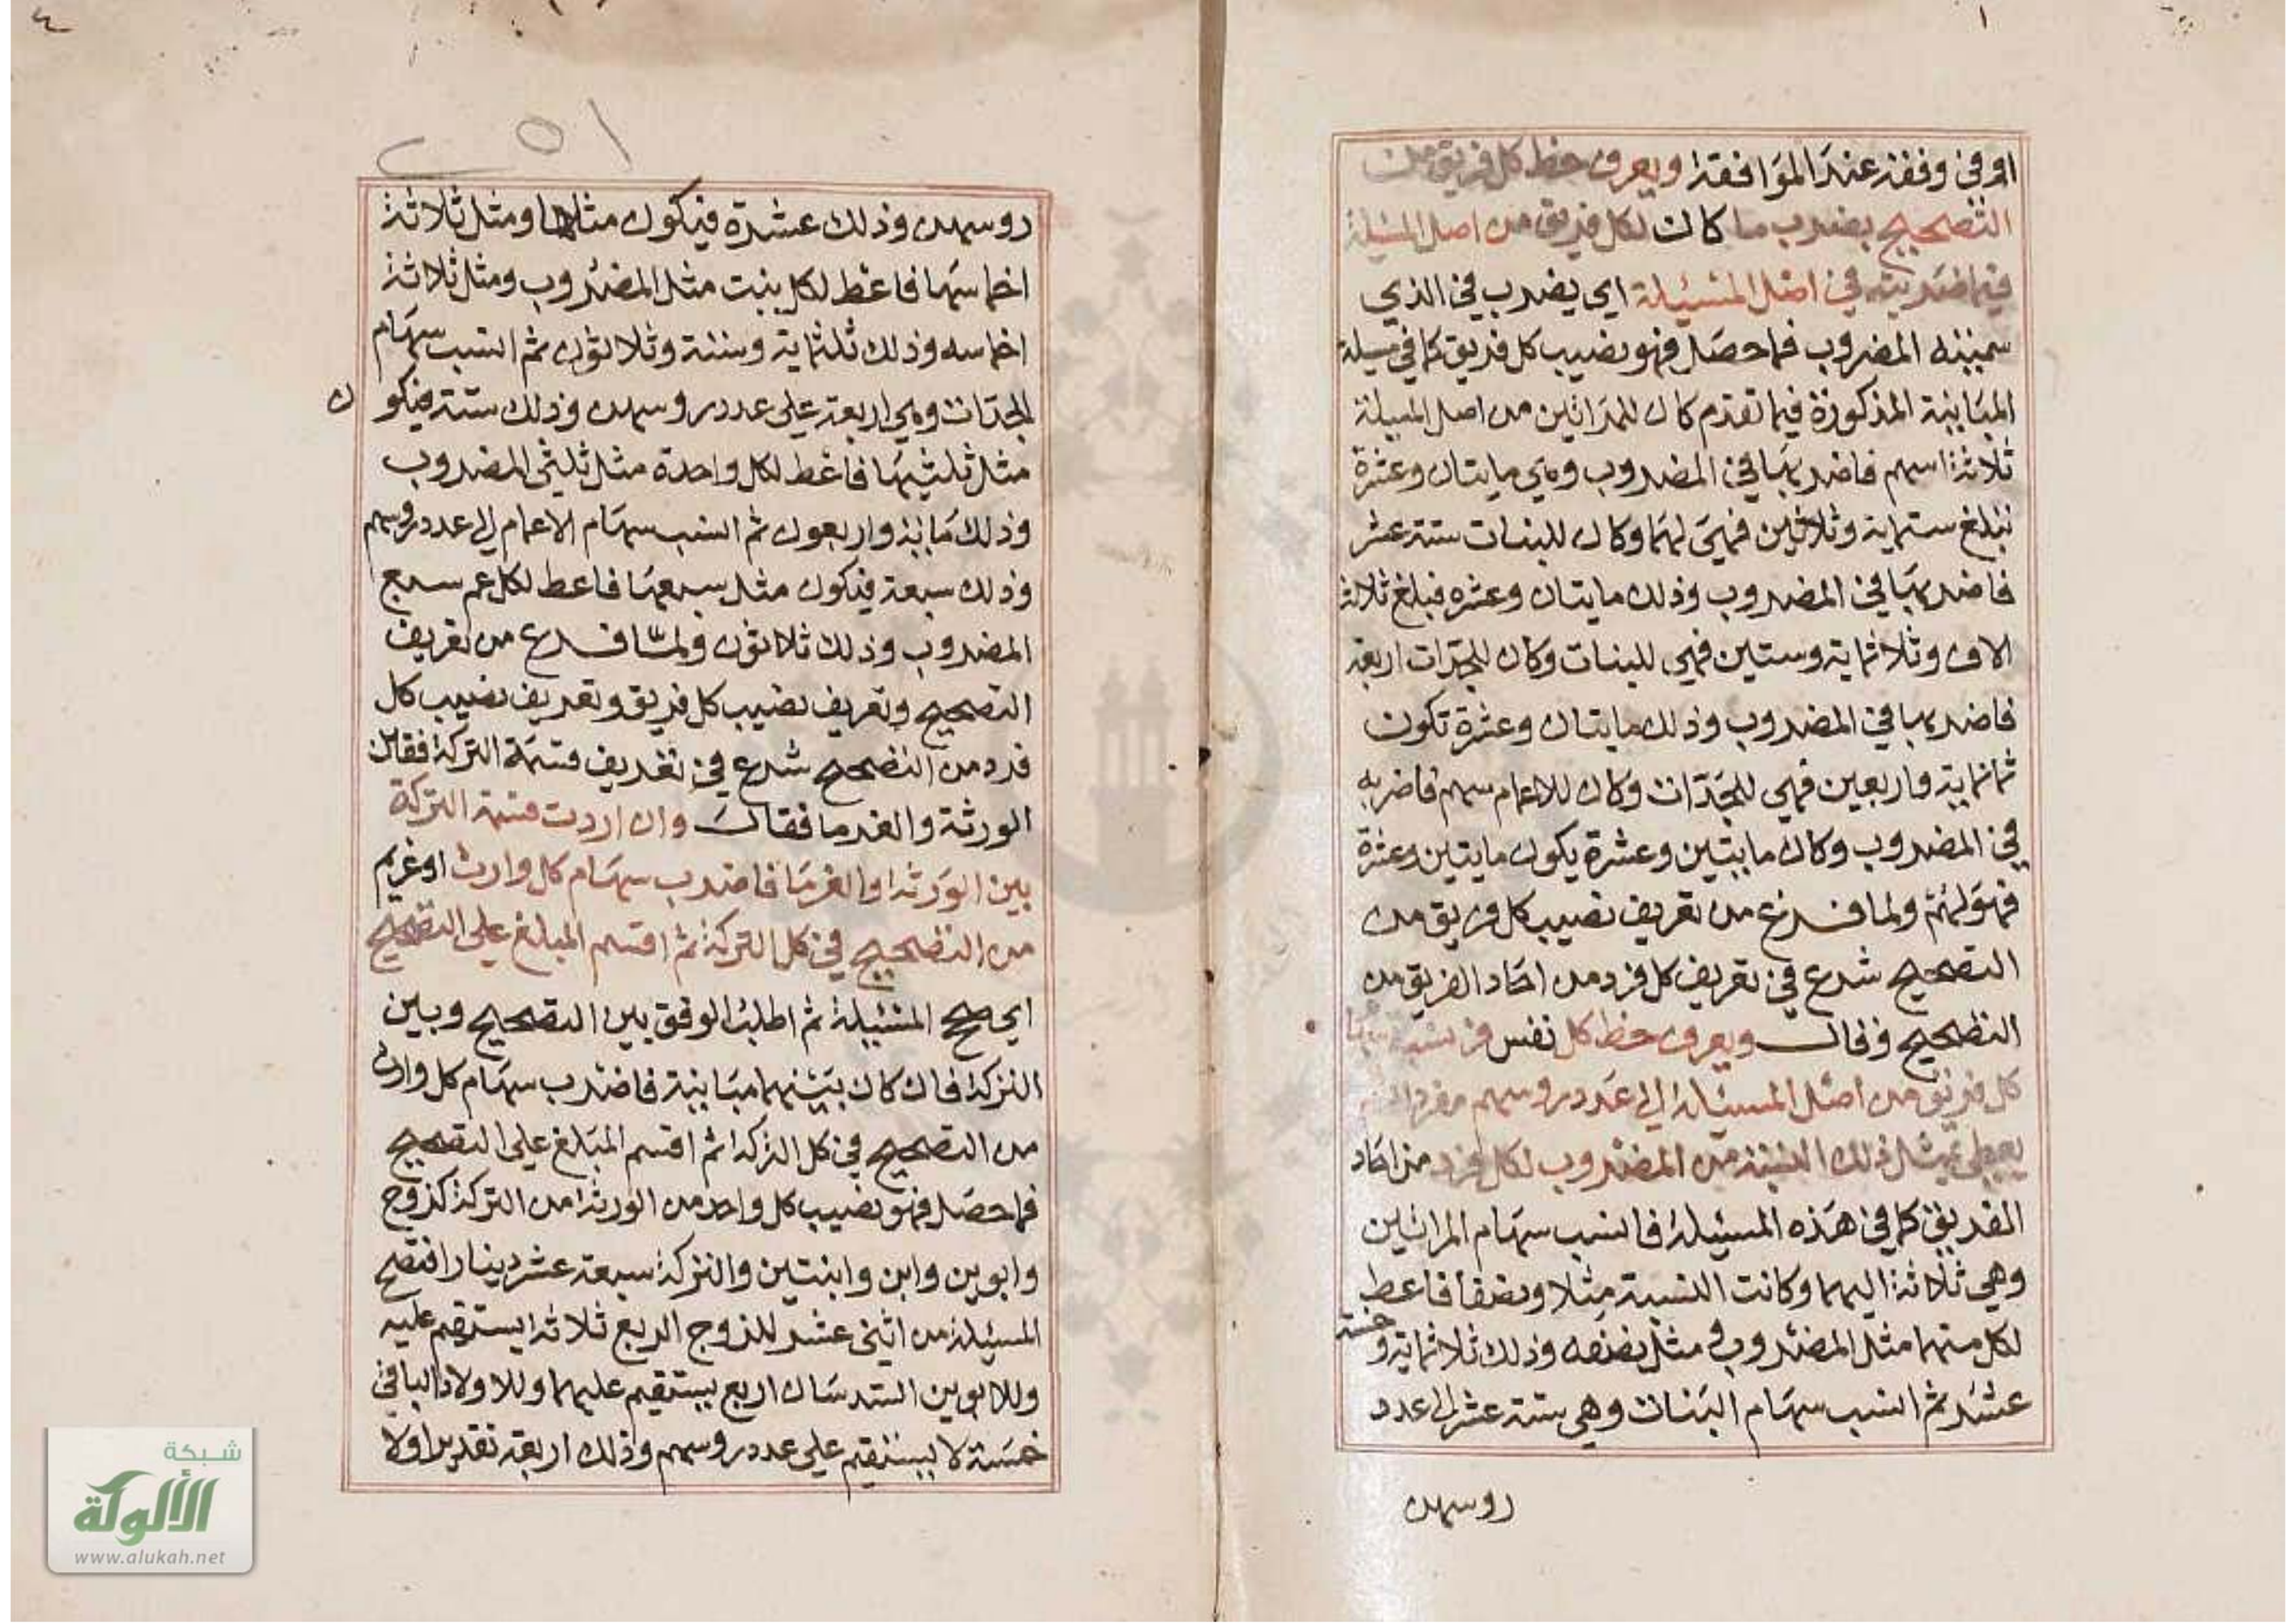 او في وفقه عند الموافقة ويعرف حظ كل فريق من
التصحيح بضرب ما كان لكل فريق من اصل المسئلة
فيما ضربته في اصل المسئلة اي يضرب في الذي
سميته المضروب فما حصل فهو نصيب كل فريق كما في مسيلة
المباينة المذكورة فيما تقدم كان للمراتين من اصل المسيلة
ثلاثة اسهم فاضربها في المضروب وهي مايتان وعشرة
تبلغ ستماية وثلاثين فهي لهما وكان للبنات ستة عشر
فاضربها في المضروب وذلك مايتان وعشره فبلغ ثلاثة
الاف وثلاثماية وستين فهي للبنات وكان للجدات اربعة
فاضربها في المضروب وذلك مايتان وعشرة تكون
ثمانماية واربعين فهي للجدات وكان للاعمام سهم فاضربه
في المضروب وكان مايتين وعشرة يكون مايتين وعشرة
فهو لهم ولما فرغ من تعريف نصيب كل فريق من
التصحيح شرع في تعريف كل فرد من احاد الفريق من
التصحيح وقال ويعرف حظ كل نفس
كل فريق من اصل المسئلة الي عدد روسهم مفردا
يعطي بمثل ذلك النسبة من المضروب لكل فرد من احاد
الفريق كما في هذه المسئيلة فانسب سهام المراتين
وهي ثلاثة اليهما وكانت النسبة مثلا ونصفا فاعط
لكل منهما مثل المضروب و مثل نصفه وذلك ثلاثماية وخمسة
عشر ثم انسب سهام البنات وهي ستة عشر الي عدد
روسهن
١٥
روسهن وذلك عشرة فيكون مثلها ومثل ثلاثة
اخماسها فاعط لكل بنت مثل المضروب ومثل ثلاثة
اخماسه وذلك ثلثماية وستة وثلاثون ثم انسب سهام
الجدات وهي اربعة علي عدد روسهن وذلك ستة فيكون
مثل ثلثيها فاعط لكل واحدة مثل ثلثي المضروب
وذلك ماية واربعون ثم انسب سهام الاعمام الي عدد روسهم
وذلك سبعة فيكون مثل سبعها فاعط لكل عم سبع
المضروب وذلك ثلاثون ولما فرغ من تعريف
التصحيح وتعريف نصيب كل فريق وتعريف نصيب كل
فرد من التصحيح شرع في تعريف قسمة التركة فقال
الورثة والغرما فقال وان اردت قسمة التركة
بين الورثة او الغرما فاضرب سهام كل وارث او غريم
من التصحيح في كل التركة ثم اقسم المبلغ علي التصحيح
اي صحح المسئيلة ثم اطلب الوفق بين التصحيح وبين
التركة فان كان بينهما مباينة فاضرب سهام كل وارث
من التصحيح في كل التركة ثم اقسم المبلغ علي التصحيح
فما حصل فهو نصيب كل واحد من الورثة من التركة كزوج
وابوين وابن وابنتين والتركة سبعة عشر دينارا فتصح
المسئيلة من اثني عشر للزوج الربع ثلاثة ايستقيم عليه
وللابوين السدسان اربع يستقيم عليهما وللاولاد الباقي
خمسة لا يستقيم علي عدد روسهم وذلك اربعة تقديرا ولا
شبكة
الألوكة
www.alukah.net